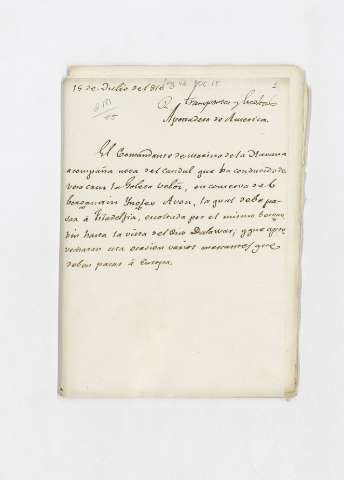 15 de Julio de 1816
Apostadero de America.
El Comandante de marina de la Havana
acompaña nota del caudal que ha conducido de
vera cruz la Goleta veloz, en conserva de el
bergantin Yngles Avon, la qual debe pa
sar à Filadelfia, escoltada por el mismo bergan
tin hasta la vista del Dalawar; y que apro
vecharan esta ocasion varios que
deben pasar à Europa.